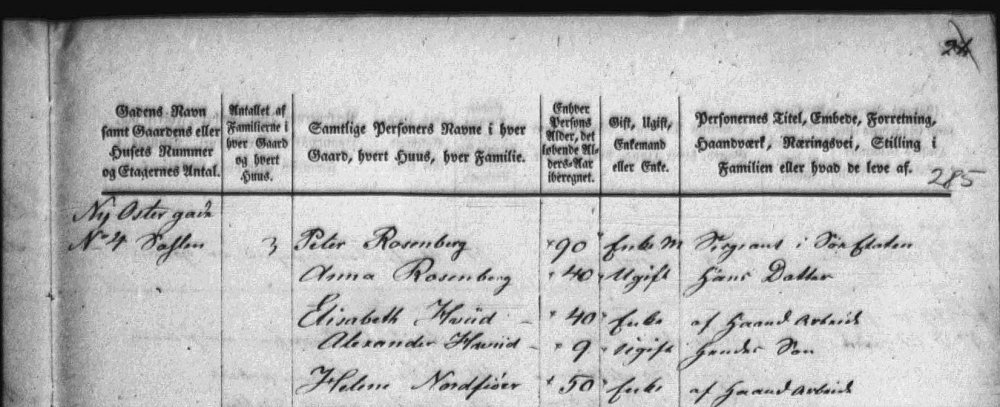 24
Gadens Navn samt Gaardens eller Husets Nummer og Etagernes Antal.
Antallet af Familierne i hver Gaard og hvert Huus.
Samtlige Personers Navne i hver Gaard, hvert Huus, hver Familie.
Enhver Persons Alder, det løbende Alders-Aar iberegnet.
Gift, Ugift, Enkemand eller Enke.
Personernes Titel, Embede, Forretning, Haandværk, Næringsvei, Stilling i Familien eller hvad de leve af.
285
Ny Oster gade
No 4 3 Peter Rosenberg 90 Enke M Sergeant i Søe Etaten
Anna Rosenberg 40 Ugift Hans Datter
Elisabeth Hviid 40 Enke af Haand Arbeide
Alexander Haviid 9 Ugift Hendes Søn
Helene Nordfiöer 50 Enke af Haand Arbeide